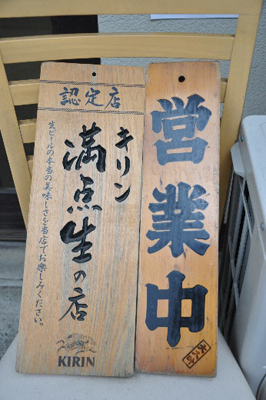 認定店
キリン
満点生の店
生ビールの本当の美味しさを当店でお楽しみください。
KIRIN
営業中